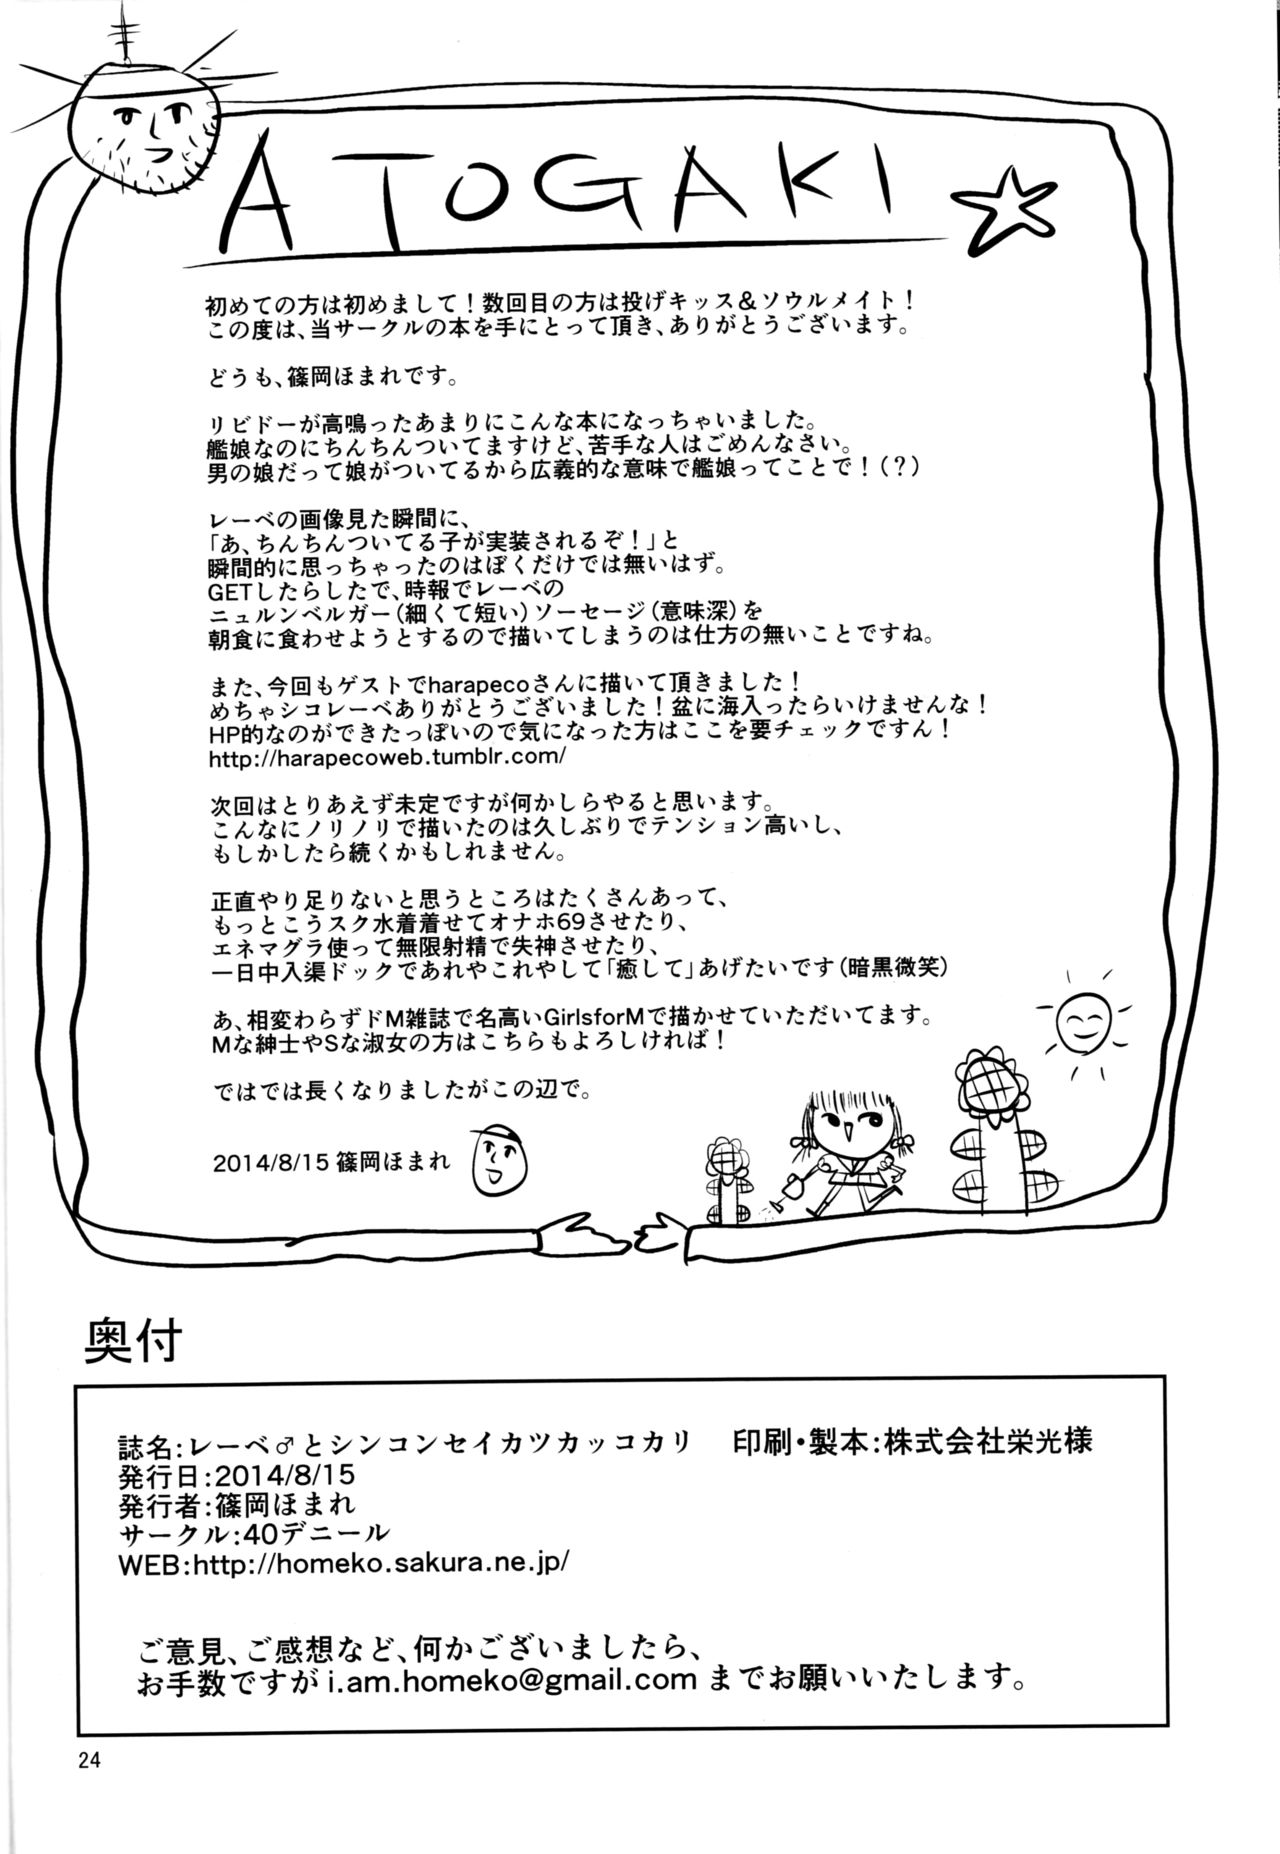 ATOGAKI
初めての方は初めまして！数回目の方は投げキッス&ソウルメイト！
この度は、当サークルの本を手にとって頂き、ありがとうございます。
どうも、篠岡ほまれです。
リビドーが高鳴ったあまりにこんな本になっちゃいました。
艦娘なのにちんちんついてますけど、苦手な人はごめんなさい。
男の娘だって娘がついてるから広義的な意味で艦娘ってことで！（？）
レーベの画像見た瞬間に、
「あ、ちんちんついてる子が実装されるぞ！」と
瞬間的に思っちゃったのはぼくだけでは無いはず。
GETしたらしたで、時報でレーベの
ニュルンベルガー（細くて短い）ソーセージ（意味深）を
朝食に食わせようとするので描いてしまうのは仕方の無いことですね。
また、今回もゲストでharapecoさんに描いて頂きました！
めちゃシコレーベありがとうございました！盆に海入ったらいけませんな！
HP的なのができたっぽいので気になった方はここを要チェックですん！
http://harapecoweb.tumblr.com/
次回はとりあえず未定ですが何かしらやると思います。
こんなにノリノリで描いたのは久しぶりでテンション高いし、
もしかしたら続くかもしれません。
正直やり足りないと思うところはたくさんあって、
もっとこうスク水着着せてオナホ69させたり、
エネマグラ使って無限射精で失神させたり、
一日中入渠ドックであれやこれやして「癒して」あげたいです（暗黒微笑）
あ、相変わらずドM雑誌で名高いGirlsforMで描かせていただいてます。
Mな紳士やSな淑女の方はこちらもよろしければ！
ではでは長くなりましたがこの辺で。
2014/8/15 篠岡ほまれ
奥付
誌名：レーベ♂とシンコンセイカツカッコカリ　印刷・製本：株式会社栄光様
発行日：2014/8/15
発行者：篠岡ほまれ
サークル：40デニール
WEB：http://homeko.sakura.ne.jp/
ご意見、ご感想など、何かございましたら、
お手数ですが i.am.homeko@gmail.com までお願いいたします。
24